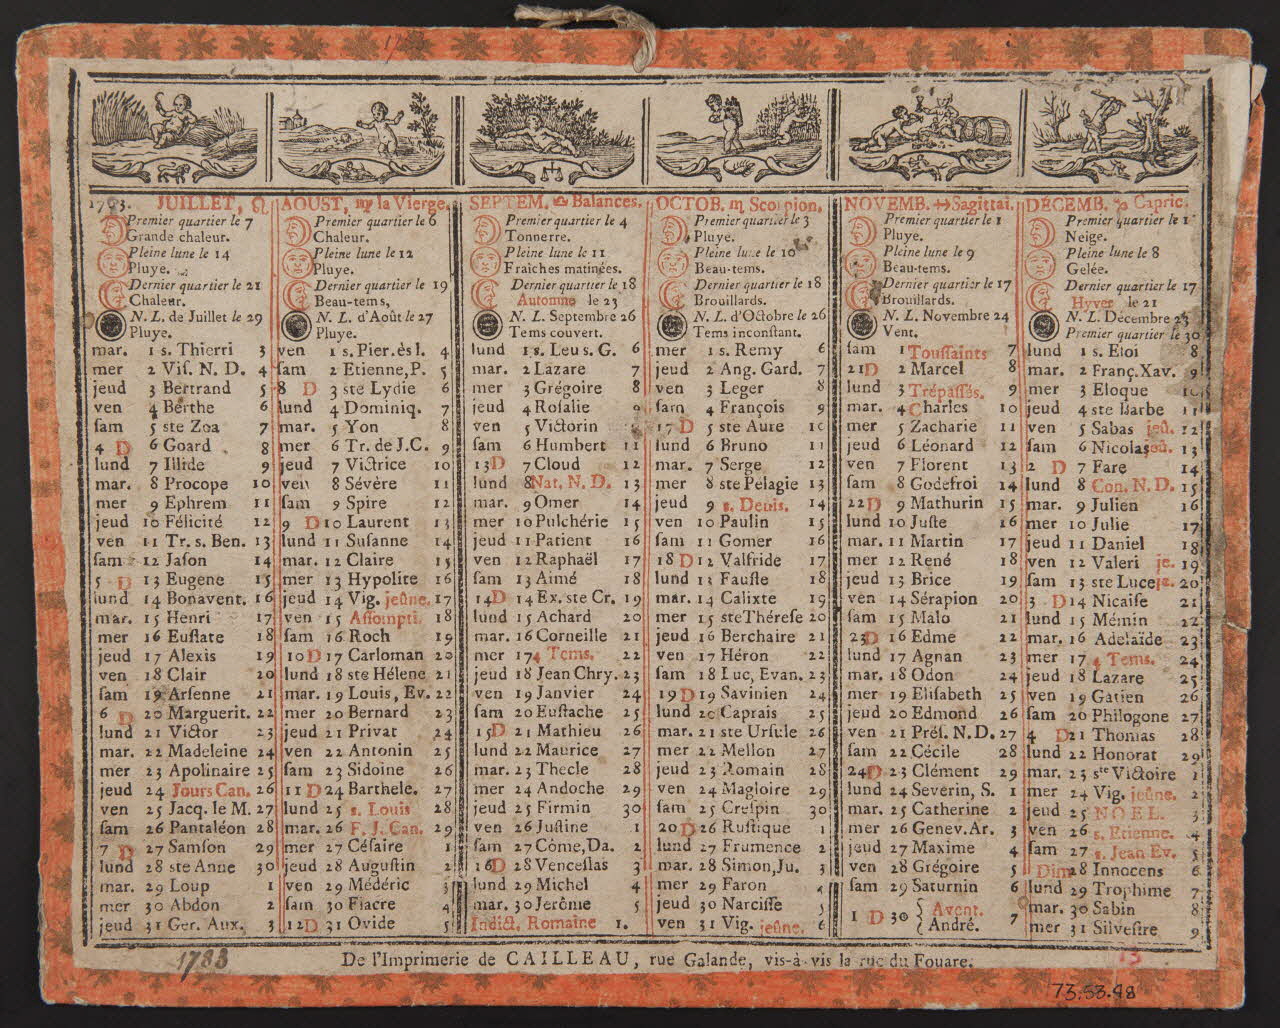 JUILLET, ♌
Premier quartier le 7
Grande chaleur.
Pleine lune le 14
Pluye.
Dernier quartier le 21
Chaleur.
N. L. de Juillet le 29
Pluye.
mar. 1 s. Thierri 3
mer 2 Vis. N. D. 4
jeud 3 Bertrand 5
ven 4 Berthe 6
sam 5 ste Zoa 7
4 D 6 Goard 8
lund 7 Illide 9
mar. 8 Procope 10
mer 9 Ephrem 11
jeud 10 Félicité 12
ven 11 Tr. s. Ben. 13
sam 12 Jason 14
5 D 13 Eugene 15
lund 14 Bonavent. 16
mar. 15 Henri 17
mer 16 Eustate 18
jeud 17 Alexis 19
ven 18 Clair 20
sam 19 Arsenne 21
6 D 20 Marguerit. 22
lund 21 Victor 23
mar. 22 Madeleine 24
mer 23 Apolinaire 25
jeud 24 Jours Can. 26
ven 25 Jacq. le M. 27
sam 26 Pantaléon 28
7 D 27 Samson 29
lund 28 ste Anne 30
mar. 29 Loup 1
mer 30 Abdon 2
jeud 31 Ger. Aux. 3
AOUST, ♍ la Vierge.
Premier quartier le 6
Chaleur.
Pleine lune le 12
Pluye.
Dernier quartier le 19
Beau-tems,
N. L. d'Août le 27
Pluye.
ven 1 s. Pier. ès l. 4
sam 2 Etienne, P. 5
8 D 3 ste Lydie 6
lund 4 Dominiq. 7
mar. 5 Yon 8
mer 6 Tr. de J.C. 9
jeud 7 Victrice 10
ven 8 Sévère 11
sam 9 Spire 12
9 D 10 Laurent 13
lund 11 Susanne 14
mar. 12 Claire 15
mer 13 Hypolite 16
jeud 14 Vig. jeûne. 17
ven 15 Assompti. 18
sam 16 Roch 19
10 D 17 Carloman 20
lund 18 ste Hélene 21
mar. 19 Louis, Ev. 22
mer 20 Bernard 23
jeud 21 Privat 24
ven 22 Antonin 25
sam 23 Sidoine 26
11 D 24 Barthele. 27
lund 25 s. Louis 28
mar. 26 F. J. Can. 29
mer 27 Césaire 1
jeud 28 Augustin 2
ven 29 Médéric 3
sam 30 Fiacre 4
12 D 31 Ovide 5
SEPTEM. ♎ Balances.
Premier quartier le 4
Tonnerre.
Pleine lune le 11
Fraîches matinées.
Dernier quartier le 18
Automne le 23
N. L. Septembre 26
Tems couvert.
lund 1 s. Leu s. G. 6
mar. 2 Lazare 7
mer 3 Grégoire 8
jeud 4 Rosalie
ven 5 Victorin
sam 6 Humbert 11
13 D 7 Cloud 12
lund 8 Nat. N. D. 13
mar. 9 Omer 14
mer 10 Pulchérie 15
jeud 11 Patient 16
ven 12 Raphaël 17
sam 13 Aimé 18
14 D 14 Ex. ste Cr. 19
lund 15 Achard 20
mar. 16 Corneille 21
mer 17 4 Tems. 22
jeud 18 Jean Chry. 23
ven 19 Janvier 24
sam 20 Eustache 25
15 D 21 Mathieu 26
lund 22 Maurice 27
mar. 23 Thecle 28
mer 24 Andoche 29
jeud 25 Firmin 30
ven 26 Justine 1
sam 27 Côme, Da. 2
16 D 28 Venceslas 3
lund 29 Michel 4
mar. 30 Jerôme 5
Indict. Romaine 1.
OCTOB. ♏ Scorpion.
Premier quartier le 3
Pluye.
Pleine lune le 10
Beau-tems.
Dernier quartier le 18
Brouillards.
N. L. d'Octobre le 26
Tems inconstant.
mer 1 s. Remy 6
jeud 2 Ang. Gard. 7
ven 3 Leger 8
sam 4 François 9
17 D 5 ste Aure 10
lund 6 Bruno 11
mar. 7 Serge 12
mer 8 ste Pélagie 13
jeud 9 s. Denis. 14
ven 10 Paulin 15
sam 11 Gomer 16
18 D 12 Valfride 17
lund 13 Fauste 18
mar. 14 Calixte 19
mer 15 ste Thérese 20
jeud 16 Berchaire 21
ven 17 Héron 22
sam 18 Luc, Evan. 23
19 D 19 Savinien 24
lund 20 Caprais 25
mar. 21 ste Ursule 26
mer 22 Mellon 27
jeud 23 Romain 28
ven 24 Magloire 29
sam 25 Crespin 30
20 D 26 Rustique 1
lund 27 Frumence 2
mar. 28 Simon, Ju. 3
mer 29 Faron 4
jeud 30 Narcisse 5
ven 31 Vig. jeûne. 6
NOVEMB. ♐ Sagittai.
Premier quartier le 1
Pluye.
Pleine lune le 9
Beau-tems.
Dernier quartier le 17
Brouillards.
N. L. Novembre 24
Vent.
sam 1 Toussaints 7
21 D 2 Marcel 8
lund 3 Trépassés. 9
mar. 4 Charles 10
mer 5 Zacharie 11
jeud 6 Léonard 12
ven 7 Florent 13
sam 8 Godefroi 14
22 D 9 Mathurin 15
lund 10 Juste 16
mar. 11 Martin 17
mer 12 René 18
jeud 13 Brice 19
ven 14 Sérapion 20
sam 15 Malo 21
23 D 16 Edme 22
lund 17 Agnan 23
mar. 18 Odon 24
mer 19 Elisabeth 25
jeud 20 Edmond 26
ven 21 Prés. N. D. 27
sam 22 Cécile 28
24 D 23 Clément 29
lund 24 Severin, S. 1
mar. 25 Catherine 2
mer 26 Genev. Ar. 3
jeud 27 Maxime 4
ven 28 Grégoire 5
sam 29 Saturnin 6
1 D 30 { Avent. 7
André.
DÉCEMB. ♑ Capric.
Premier quartier le 1
Neige.
Pleine lune le 8
Gelée.
Dernier quartier le 17
Hyver le 21
N. L. Décembre 23
Premier quartier le 30
lund 1 s. Eloi 8
mar. 2 Franç. Xav. 9
mer 3 Eloque 10
jeud 4 ste Barbe 11
ven 5 Sabas jeû. 12
sam 6 Nicolas jeû. 13
2 D 7 Fare 14
lund 8 Con. N. D. 15
mar. 9 Julien 16
mer 10 Julie 17
jeud 11 Daniel 18
ven 12 Valeri je. 19
sam 13 ste Luce je. 20
3 D 14 Nicaise 21
lund 15 Mémin 22
mar. 16 Adelaïde 23
mer 17 4 Tems. 24
jeud 18 Lazare 25
ven 19 Gatien 26
sam 20 Philogone 27
4 D 21 Thomas 28
lund 22 Honorat 29
mar. 23 ste Victoire 1
mer 24 Vig. jeûne. 2
jeud 25 NOEL. 3
ven 26 s. Etienne. 4
sam 27 s. Jean Ev. 5
Dim 28 Innocens 6
lund 29 Trophime 7
mar. 30 Sabin 8
mer 31 Silvestre 9
De l'Imprimerie de CAILLEAU, rue Galande, vis-à-vis la rue du Fouare.
1783
13
73.53.98